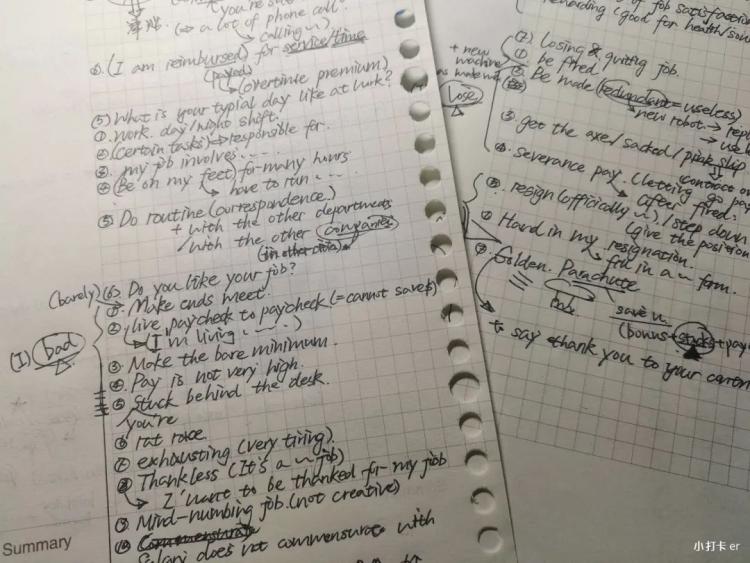 (you're su
(⇒ a lot of phone call.
calling ~)
④. (I am reimbursed) for service/time
(payed)
(overtime premium)
⑤ What is your typial day like at work?
①. work. day/night shift.
② (certain tasks) ⇒ responsible for.
③. my job involves....
④ (Be on my feet) for many hours
have to run ...
⑤ Do routine (correspondence.)
+ with the other department
/with the other companies
(in other cities).
(barely) (6). Do you like your job?
①. Make ends meet.
②. live paycheck to paycheck (= cannot save $)
(I'm living ....)
(I) bad
③. Make the bare minimum.
④. Pay is not very high.
⑤ Stuck behind the desk.
you're
⑥ rat race.
⑦ exhausting (very tiring).
⑧ Thankless (It's a ~ job)
I want to be thanked for my job
⑨ Mind-numbing job. (not creative)
⑩ Commensurate
Salary does not commensurate with
Summary
of job satisfaction
rewarding (good for health/sou
(2) losing & quiting job.
① be fired.
② Be made (redundant = useless)
+ new
machine
lose
new robot → rep
→ usel
③. get the axe/sacked/pink slip
contract ov
④. severance pay. (letting go pay
after fired.
⑤. resign (officically ~)/step down
(give the position
⑥ Hand in my resignation.
fill in a ~ form.
⑦ Golden. Parachute
save u.
(bonus + stocks + pay
to say thank you to your contri
小打卡 er